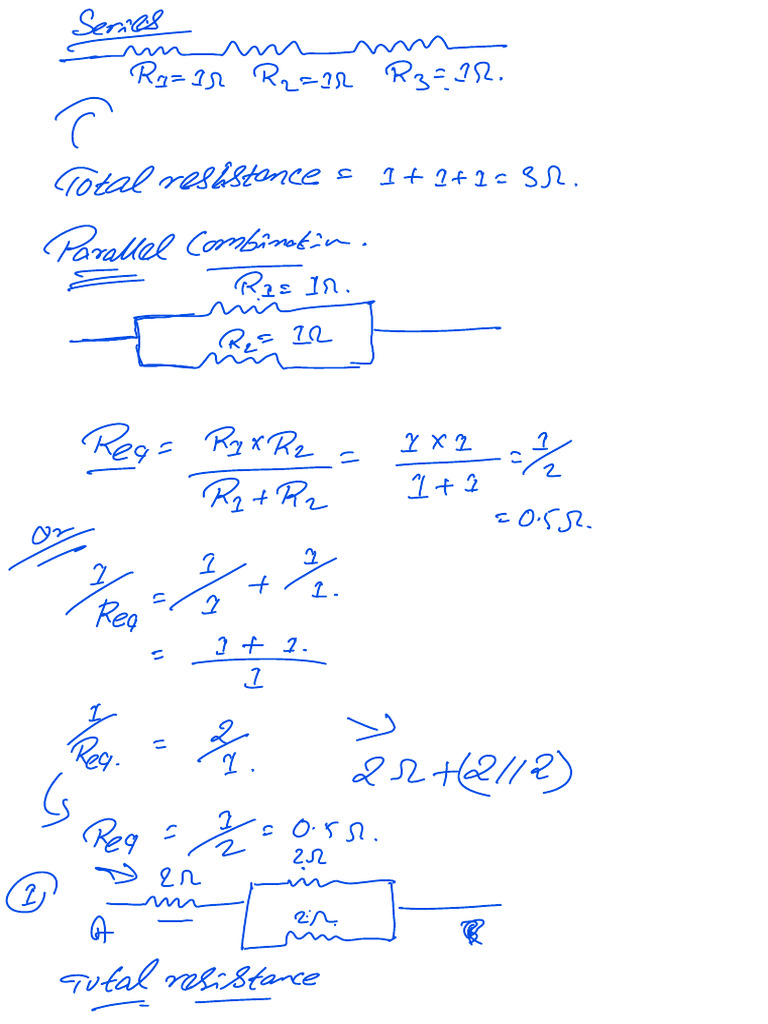 Series
R1=1Ω R2=1Ω R3=1Ω.
Total resistance = 1+1+1=3Ω.
Parallel Combination.
R1=1Ω.
R2= 1Ω
Req = R1×R2 / R1+R2 = 1×1 / 1+1 = 1/2
= 0.5Ω.
or
1/Req = 1/1 + 1/1.
= 1+1. / 1
1/Req. = 2/1.
2Ω+(2//2)
Req = 1/2 = 0.5Ω.
1 2Ω 2Ω
A 2Ω. B
Total resistance